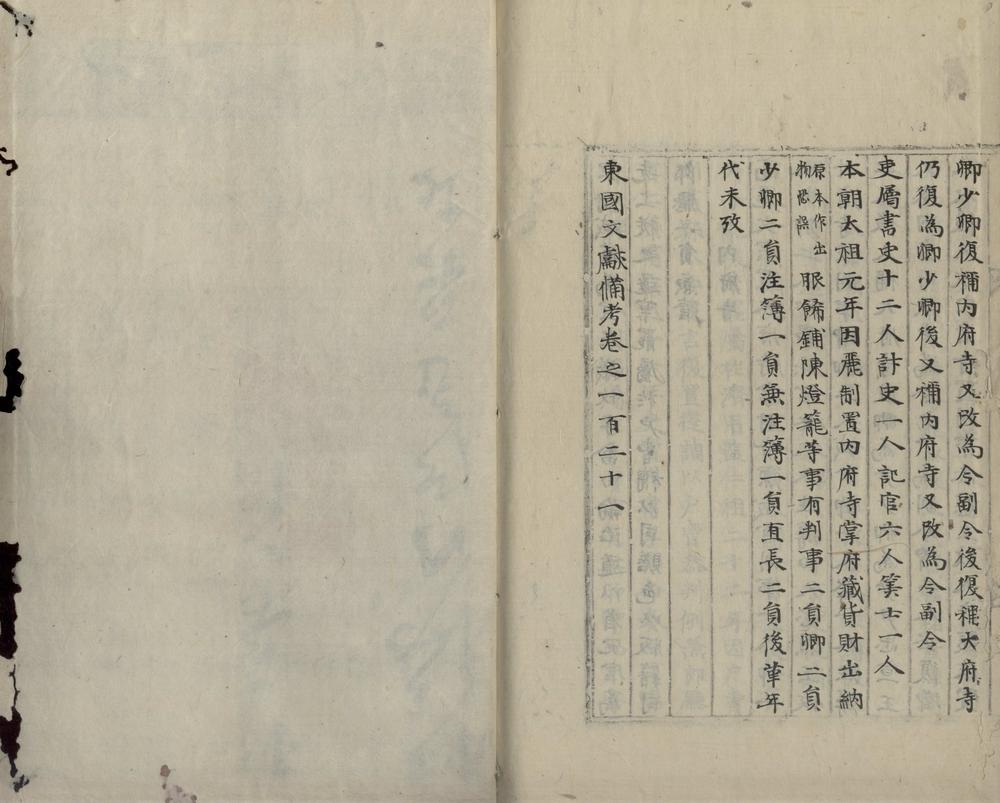 卿少卿復稱内府寺又改為令副令後復稱大府寺
仍復為卿少卿後又稱内府寺又改為令副令
吏屬書史十二人計史一人記官六人筭士一人
本朝太祖元年因麗制置内府寺掌府藏貨財出納
原本作出
物恐誤
服飾鋪陳燈籠等事有判事二員卿二員
少卿二員注簿一員兼注簿一員直長二員後革年
代未攷
東國文獻備考卷之一百二十一